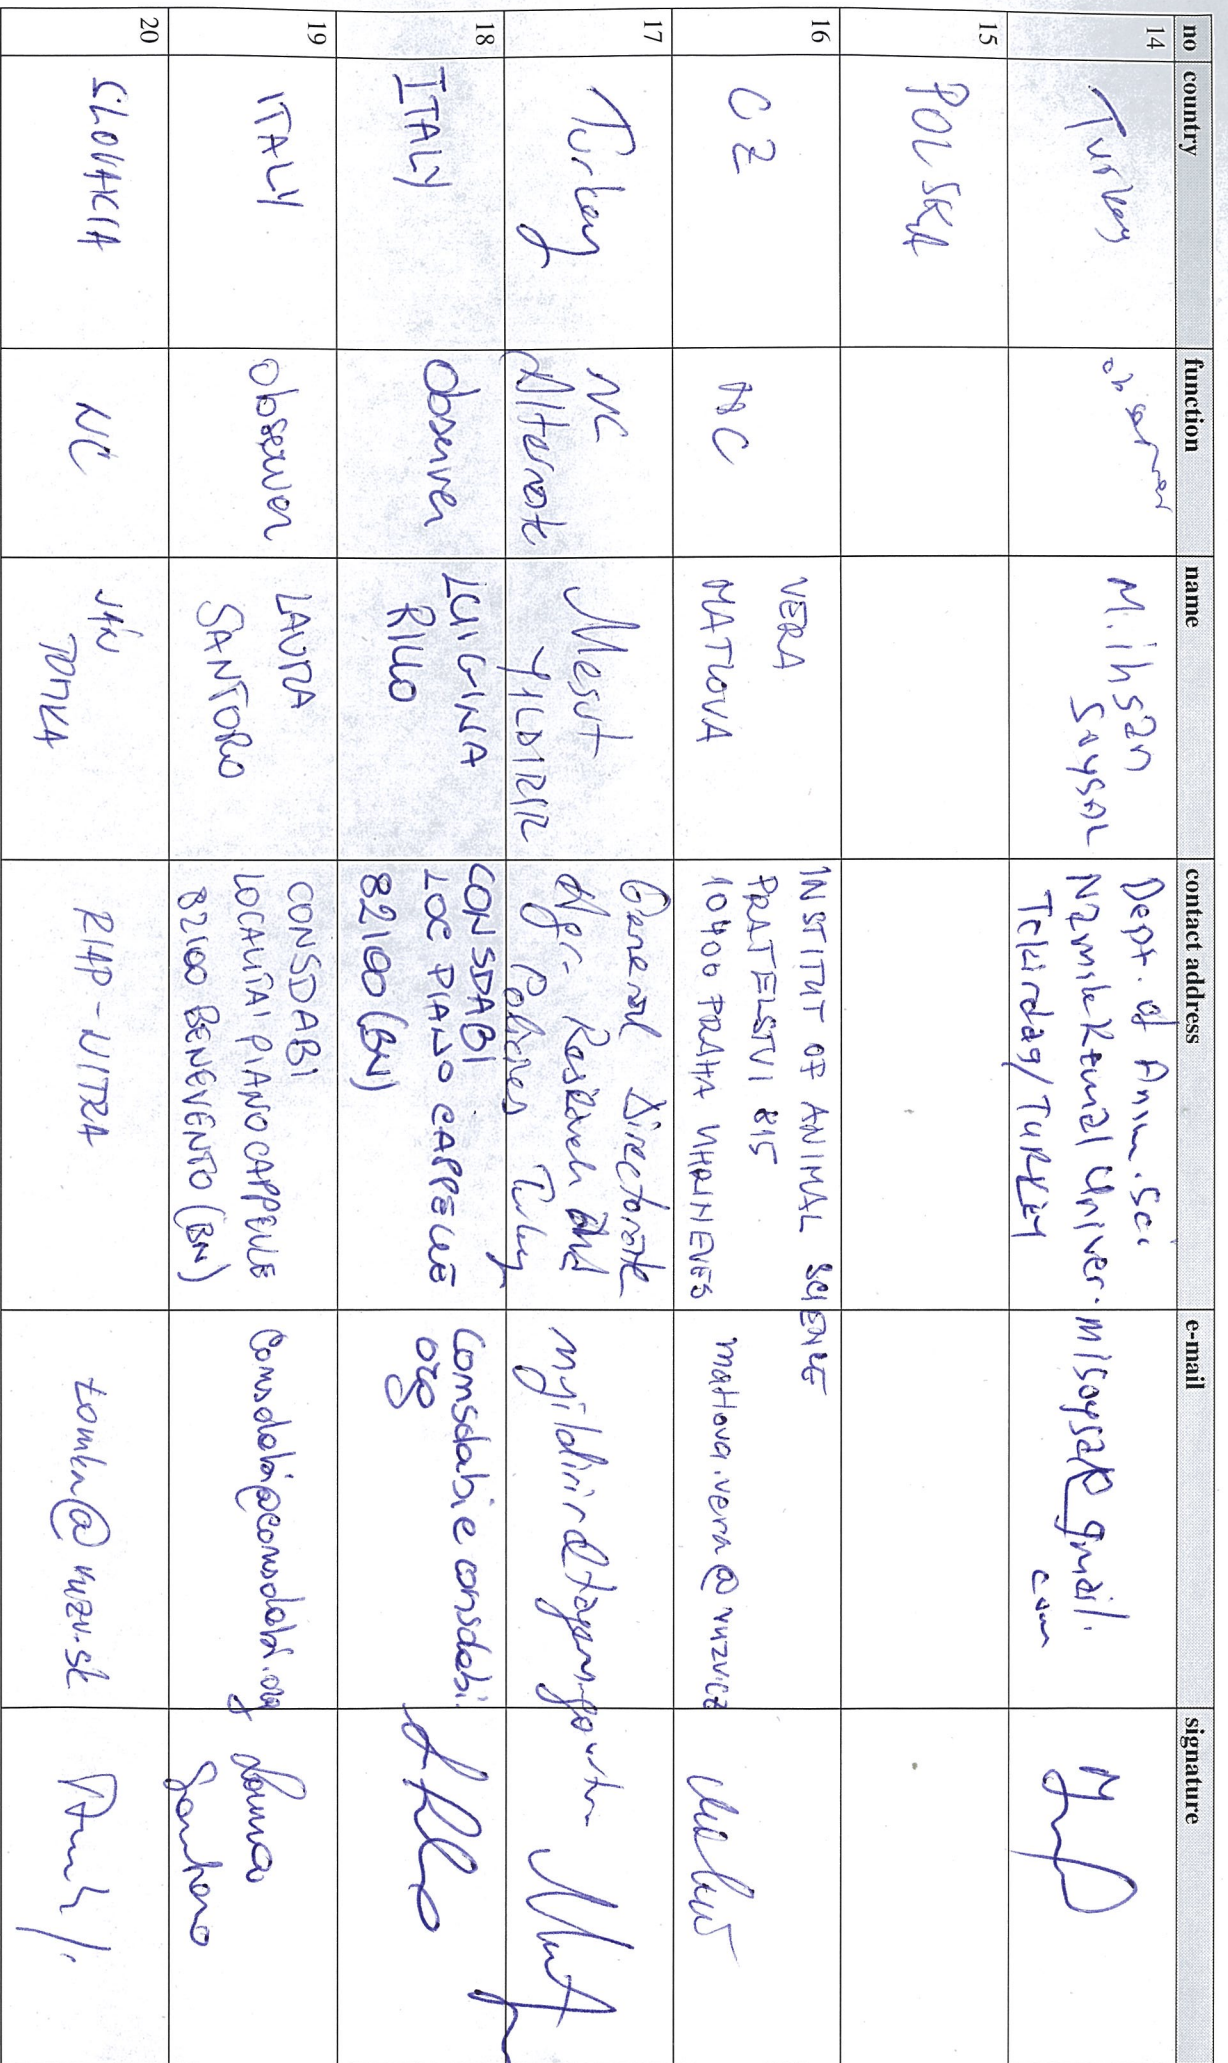 no country function name contact address e-mail signature
14 Turkey observer M. ihsan Soysal Dept. of Anim. Sci
Namık Kemal Univer.
Tekirdag/TURKEY
misoysal@gmail.
com
15 POLSKA
16 CZ NC VERA
MATLOVA
INSTITUT OF ANIMAL SCIENCE
PRATELSTVI 815
10400 PRAHA UHRINEVES
matlova.vera@vuzv.cz
17 Turkey NC
Alternate
Mesut
YILDIRIR
General Directorate
Agr. Research and
Policies Turkey
18 ITALY observer LUIGINA
RILLO
CONSDABI
LOC PIANO CAPPELLE
82100 (BN)
Consdabi@consdabi.
org
19 ITALY observer LAURA
SANTORO
CONSDABI
LOCALITA' PIANO CAPPELLE
82100 BENEVENTO (BN)
Consdabi@consdabi.org
Laura
Santoro
20 SLOVAKIA NC JÁN
TOMKA
RIAP-NITRA
tomka@vuzv.sk